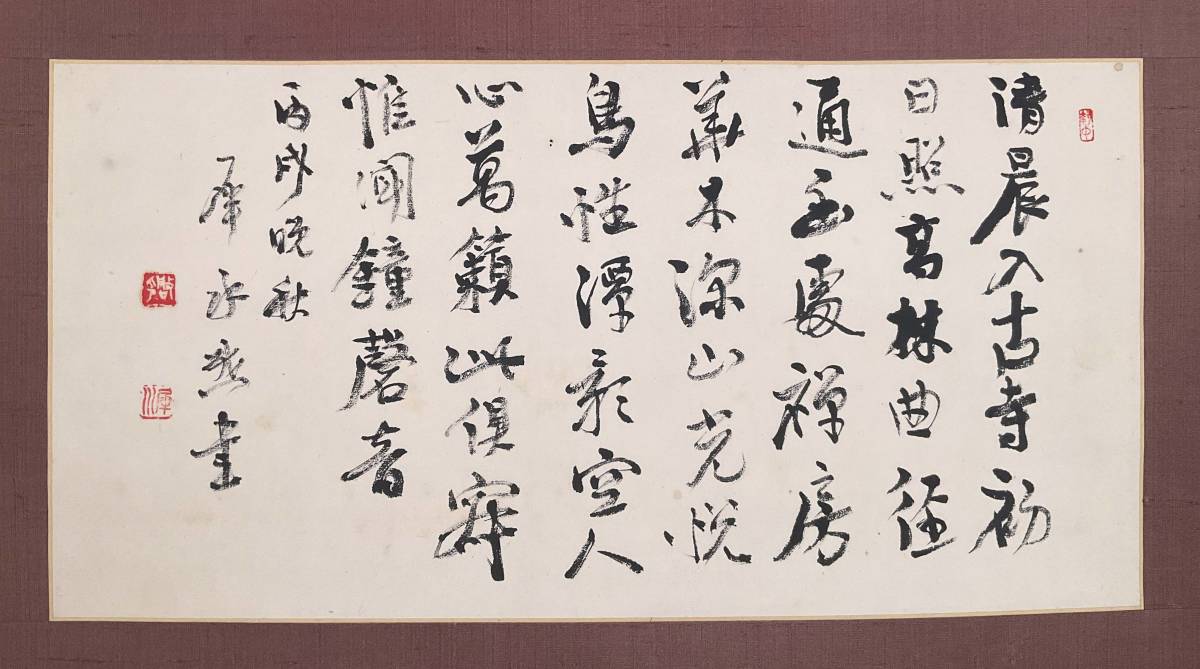 清晨入古寺初
日照高林曲徑
通幽處禪房
華木深山光悅
鳥性潭影空人
心萬籟此俱寂
惟聞鐘磬音
丙戌晚秋
書